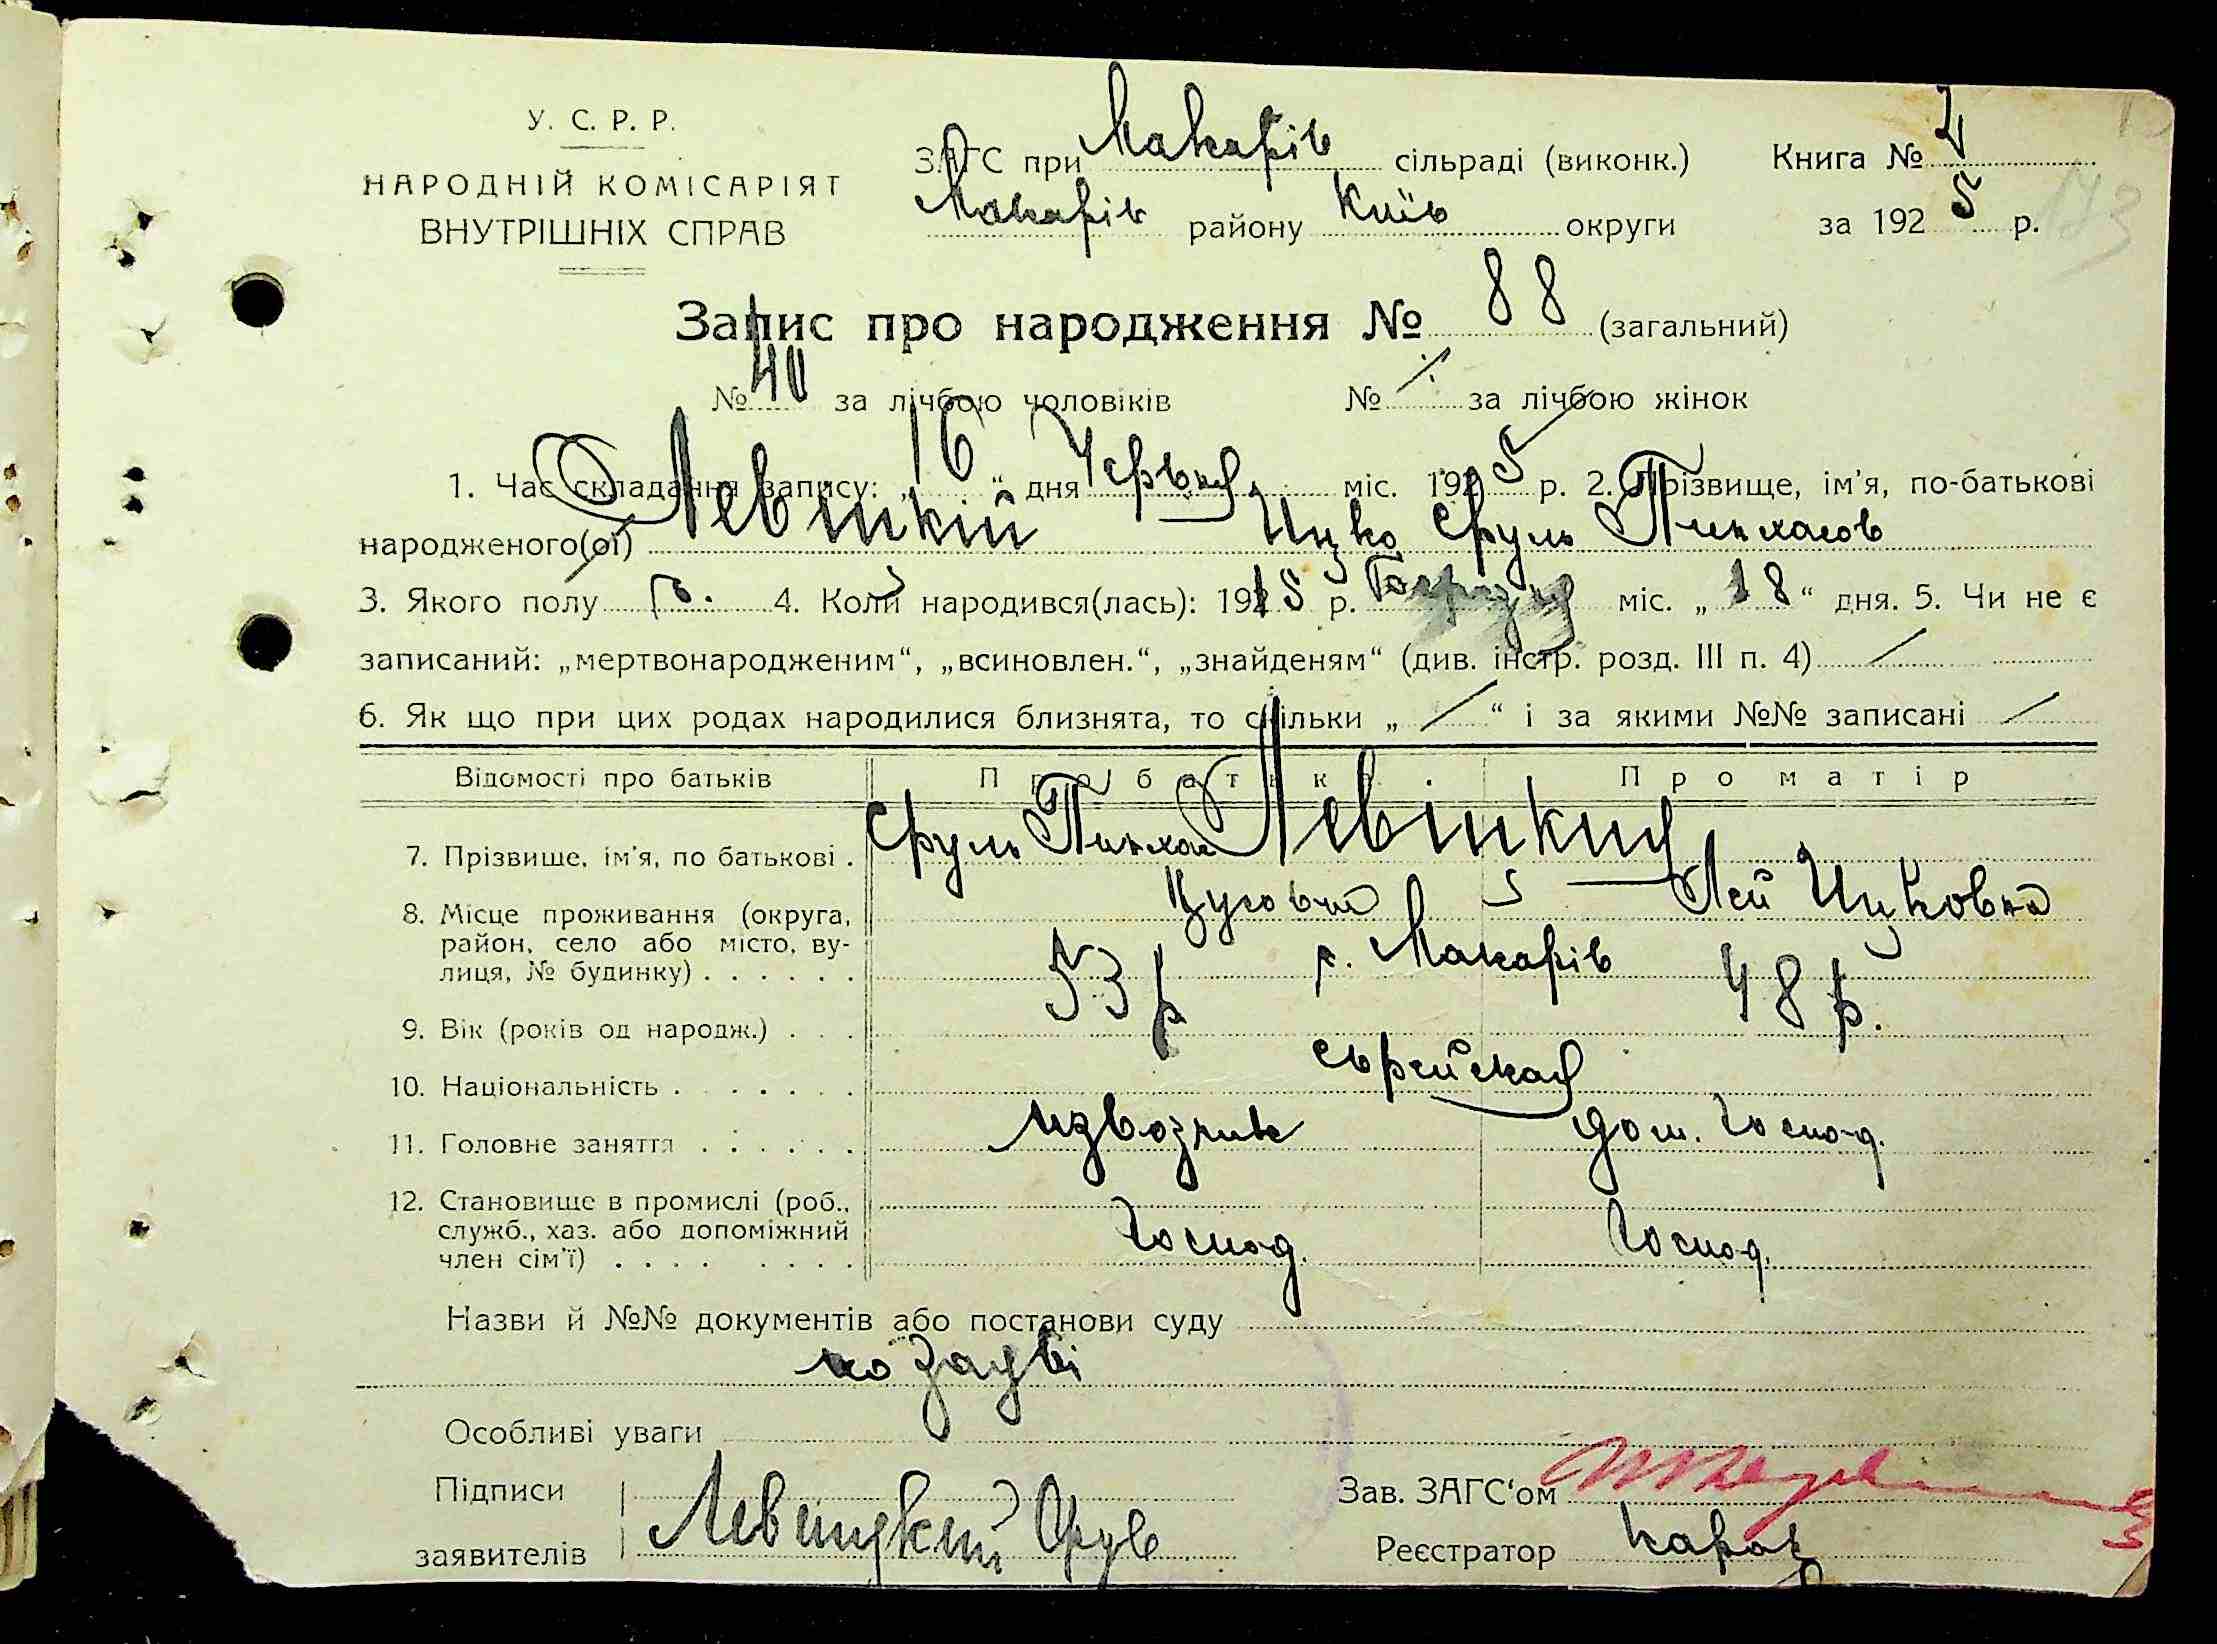 У. С. Р. Р.
НАРОДНІЙ КОМІСАРІЯТ
ВНУТРІШНІХ СПРАВ
ЗАГС при Макарів сільраді (виконк.) Книга №
Макарів району Київ округи за 1925 р.
Запис про народження № 88 (загальний)
№ 40 за лічбою чоловіків № за лічбою жінок
1. Час складання запису: „16“ дня Червня міс. 1925 р. 2. Прізвище, ім'я, по-батькові
народженого(ої) Левіцкій Ицко Сруль Пинхасов
3. Якого полу 4. Коли народився(лась): 19 р. міс. „18“ дня. 5. Чи не є
записаний: „мертвонародженим“, „всиновлен.“, „знайденям“ (див. інстр. розд. III п. 4)
6. Як що при цих родах народилися близнята, то скільки „ “ і за якими №№ записані
Відомості про батьків Про батька Про матір
7. Прізвище, ім'я, по батькові . Сруль Пинхас Левіцкия
Лей Ицковна
8. Місце проживання (округа, район, село або місто, вулиця, № будинку) . . . . . . Макарів
9. Вік (років од народж.) . . . 53 р 48 р.
10. Національність . . . . . . . еврейская
11. Головне заняття . . . . . . извозчик дом. господ.
12. Становище в промислі (роб., служб., хаз. або допоміжний член сім'ї) . . . . . . . . господ. господ.
Назви й №№ документів або постанови суду
по заяві
Особливі уваги
Підписи
заявителів Левицкий Срул
Зав. ЗАГС'ом
Реєстратор